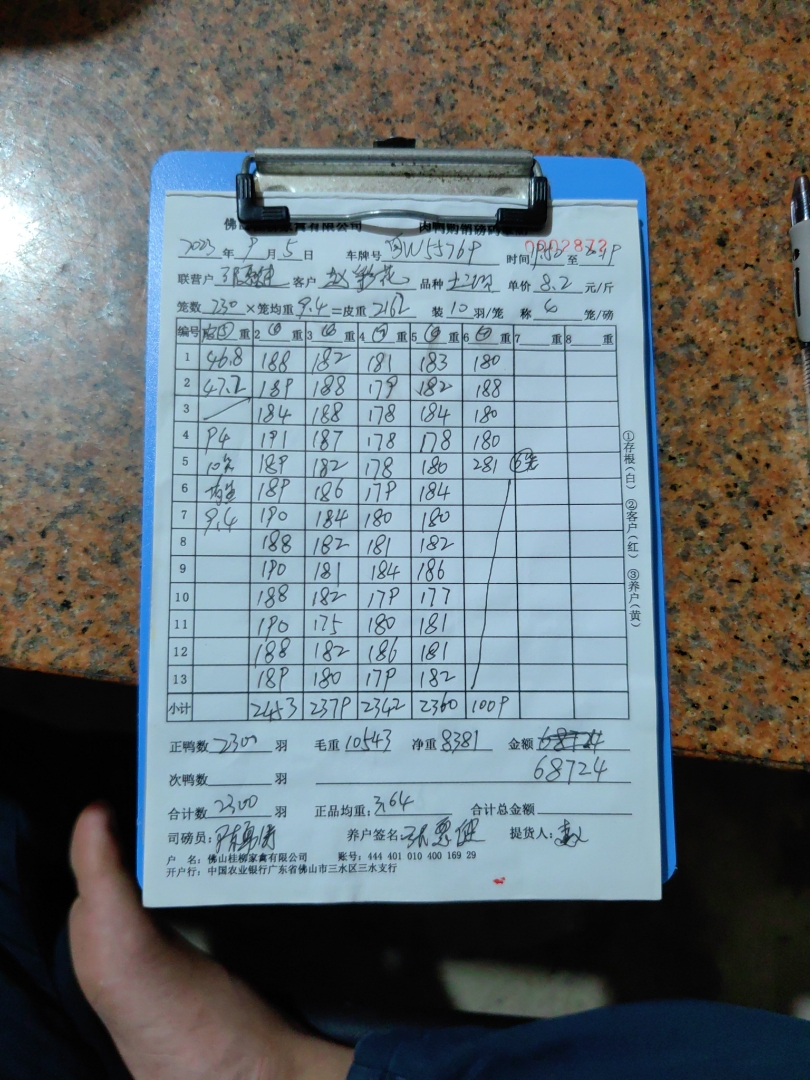 有限公司
2023年9月5日 车牌号 W55769 时间 至
联营户 客户 赵彩花 品种 单价 8.2 元/斤
笼数 230 ×笼均重 9.4 =皮重 2162 装 10 羽/笼 称 6 笼/磅
编号 重 2 ⑥ 重 3 ⑥ 重 4 重 5 ⑥ 重 6 重 7 重 8 重
1 46.8 188 182 181 183 180
2 47.2 189 188 179 182 188
3 184 188 178 184 180
4 94 191 187 178 178 180
5 189 182 178 180 281
6 189 186 179 184
7 9.4 190 184 180 180
8 188 182 181 182
9 190 181 184 186
10 188 182 179 177
11 190 175 180 181
12 188 182 186 181
13 189 180 179 182
小计 2453 2379 2342 2360 1009
①存根(白) ②客户(红) ③养户(黄)
正鸭数 2300 羽 毛重 10543 净重 8381 金额 68724
次鸭数 羽 68724
合计数 2300 羽 正品均重: 3.64 合计总金额
司磅员: 养户签名: 提货人:
户 名: 佛山桂柳家禽有限公司 账号: 444 401 010 400 169 29
开户行: 中国农业银行广东省佛山市三水区三水支行